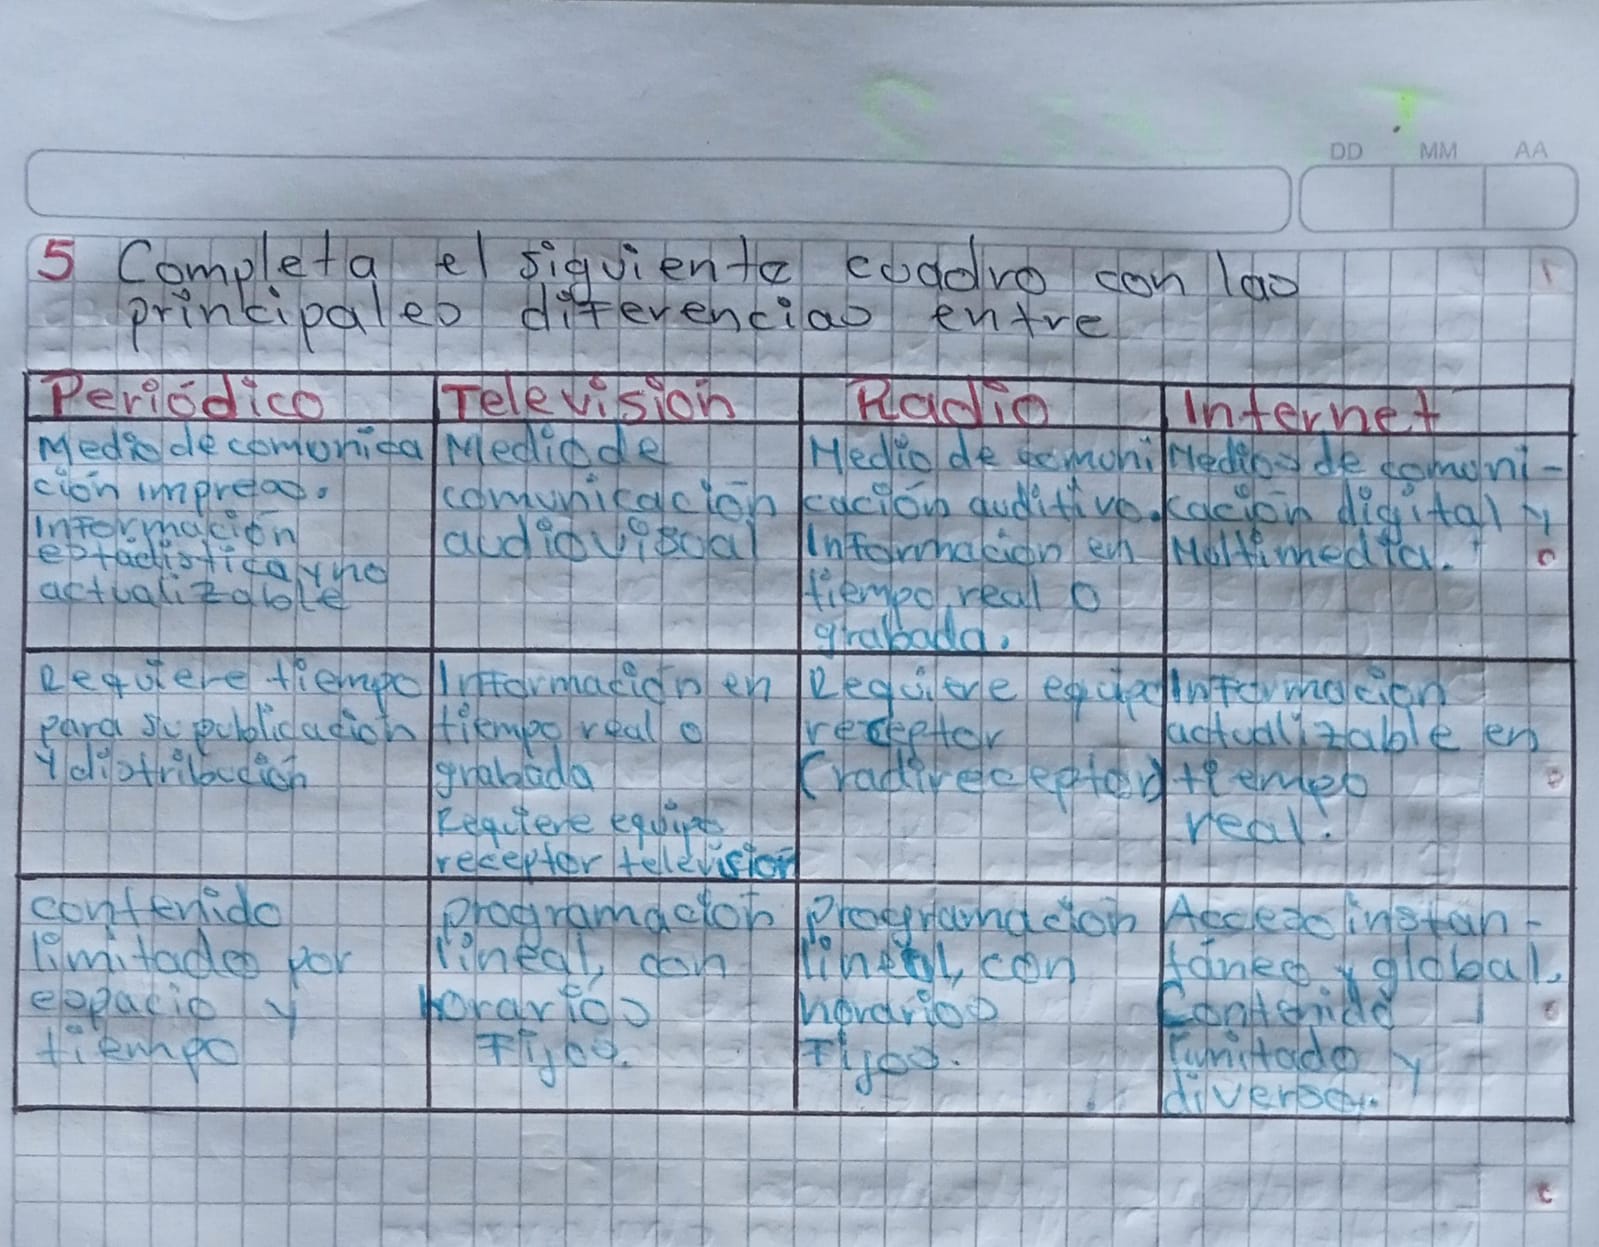 DD MM AA
5 Completa el siguiente cuadro con las
principales diferencias entre
Periódico
Televisión
Radio
Internet
Medio de comunica
ción impreso.
Información
estadistica y no
actualizable
Medio de
comunicación
audiovisual
Medio de comuni
cación auditivo.
Información en
tiempo real o
grabada.
Medios de comuni-
cación digital y
Multimedia.
Requiere tiempo
para su publicación
y distribución
Información en
tiempo real o
grabada
Requiere equipo
receptor television
Requiere equipo
receptor
(radireceptor)
Información
actualizable en
tiempo
real.
contenido
limitados por
espacio y
tiempo
programación
lineal, con
horarios
Fijos.
programación
lineal, con
horarios
Fijos.
Acceso instan-
táneo y global.
Contenido
limitado y
diverso.